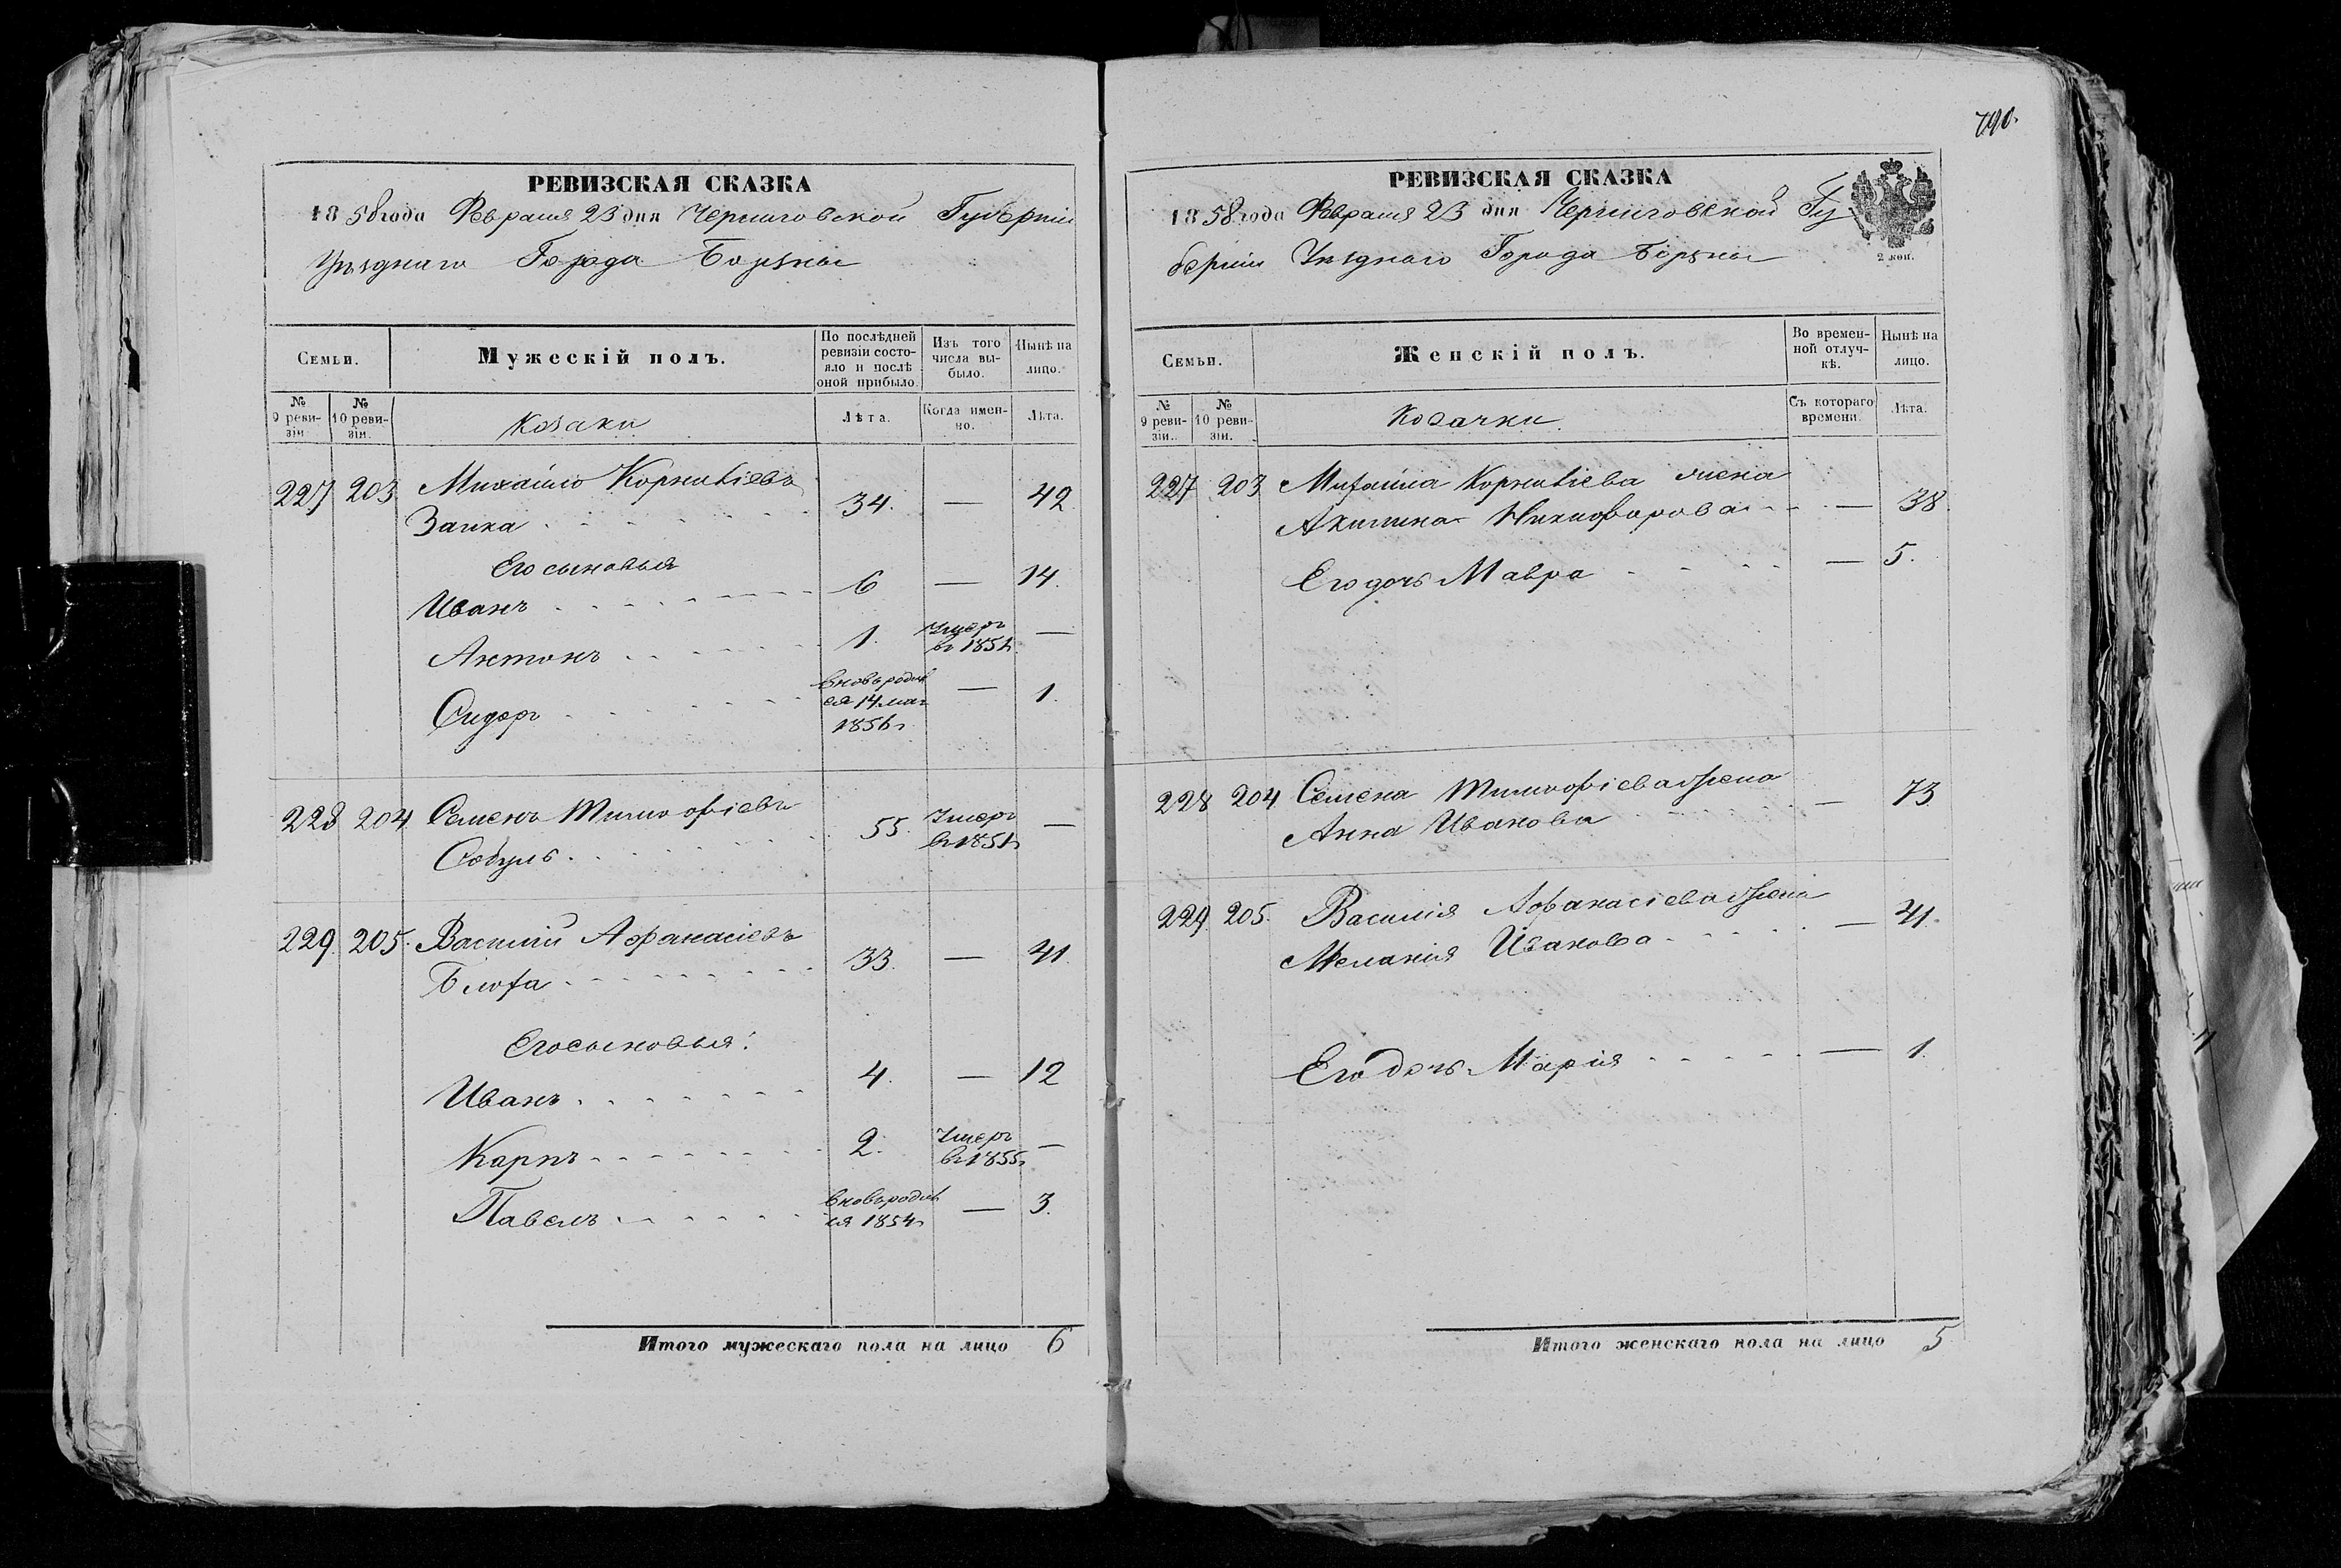 790.
РЕВИЗСКАЯ СКАЗКА
1858 года Февраля 23 дня Черниговской Губерніи
Уѣзднаго Города Борзны
Семьи.
Мужескій полъ.
По послѣдней ревизіи состояло и послѣ оной прибыло.
Изъ того числа выбыло.
Нынѣ на лицо.
№ 9 ревизіи
№ 10 ревизіи.
Козаки
Лѣта.
Когда именно.
Лѣта.
227 203 Михайло Корниліевъ
Заика 34. — 42
Его сыновья
Иванъ 6 — 14.
Антонъ 1. Умеръ въ 1851г —
Сидоръ вновь родился 14 мая 1856г — 1.
228 204 Семенъ Тимофіевъ
Собуль 55. Умеръ в 1851г —
229. 205. Василій Афанасіевъ
Блоха 33. — 41.
Его сыновья:
Иванъ 4. — 12
Карпъ 2. Умеръ в 1855г —
Павелъ вновь родился 1854г — 3.
Итого мужескаго пола на лицо 6
РЕВИЗСКАЯ СКАЗКА
1858 года Февраля 23 дня Черниговской Гу
берніи Уѣзднаго Города Борзны
2 коп.
Семьи.
Женскій полъ.
Во временной отлучкѣ.
Нынѣ на лицо.
№ 9 ревизіи.
№ 10 ревизіи.
Козачки
Съ котораго времени.
Лѣта.
227 203 Михайла Корниліева жена
Акилина Никифорова — 38.
Его дочь Мавра — 5.
228 204 Семена Тимофіева жена
Анна Иванова — 73
229. 205. Василія Афанасіева жена
Меланія Иванова — 41.
Его дочь Марія — 1.
Итого женскаго пола на лицо 5